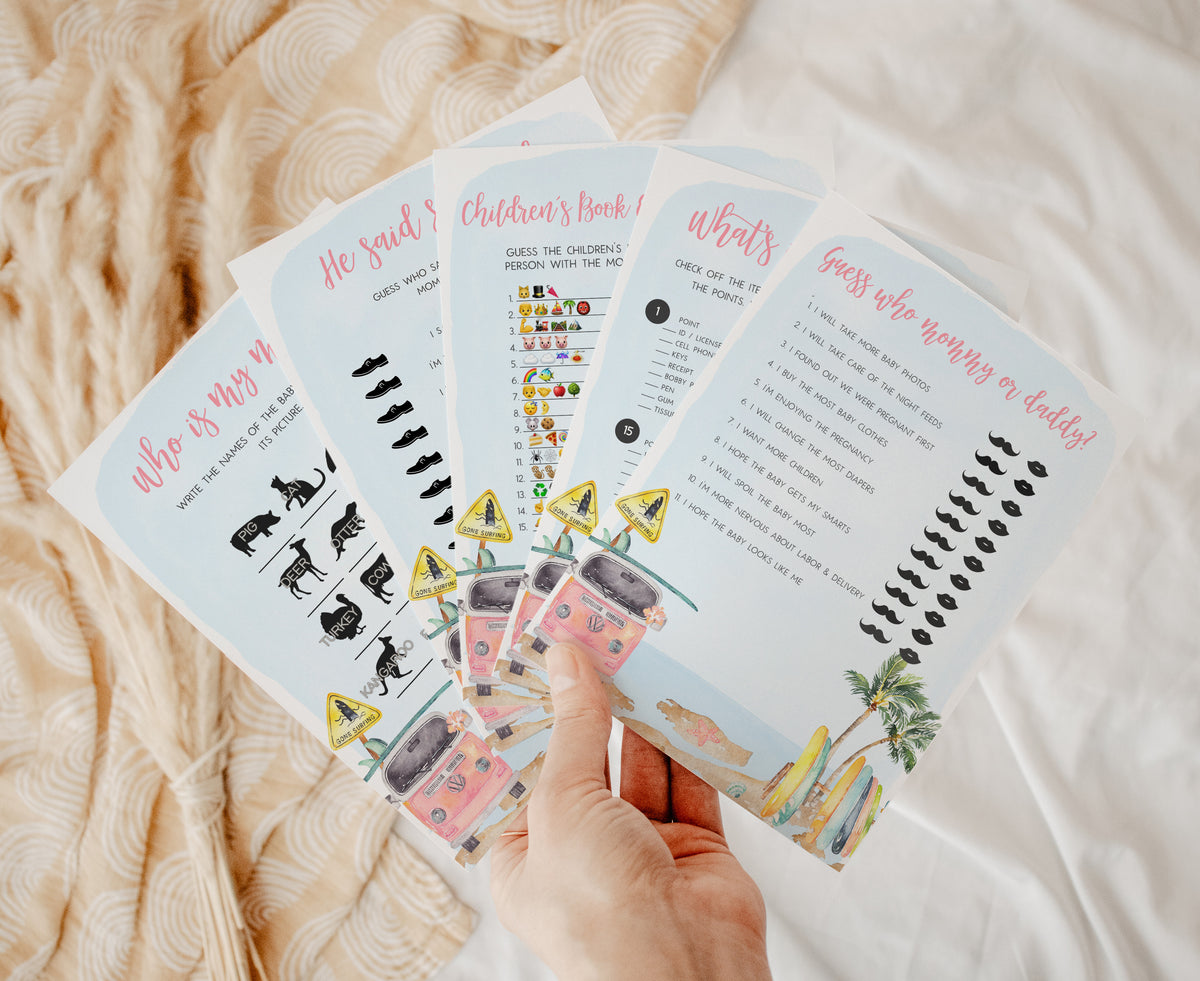 Who is my m
WRITE THE NAMES OF THE BABY
ITS PICTURE
CAT
PIG
OTTER
DEER
COW
TURKEY
KANGAROO
GONE SURFING
He said S
GUESS WHO SA
MOM
I S
I'M
GONE SURFING
Children's Book
GUESS THE CHILDREN'S
PERSON WITH THE MO
1.
2.
3.
4.
5.
6.
7.
8.
9.
10.
11.
12.
13.
14.
15.
GONE SURFING
What's
CHECK OFF THE ITE
THE POINTS.
1 POINT
ID / LICENSE
CELL PHONE
KEYS
RECEIPT
BOBBY P
PEN
GUM
TISSU
15 PO
GONE SURFING
Guess who mommy or daddy?
1. I WILL TAKE MORE BABY PHOTOS
2. I WILL TAKE CARE OF THE NIGHT FEEDS
3. I FOUND OUT WE WERE PREGNANT FIRST
4. I BUY THE MOST BABY CLOTHES
5. I'M ENJOYING THE PREGNANCY
6. I WILL CHANGE THE MOST DIAPERS
7. I WANT MORE CHILDREN
8. I HOPE THE BABY GETS MY SMARTS
9. I WILL SPOIL THE BABY MOST
10. I'M MORE NERVOUS ABOUT LABOR & DELIVERY
11. I HOPE THE BABY LOOKS LIKE ME
GONE SURFING